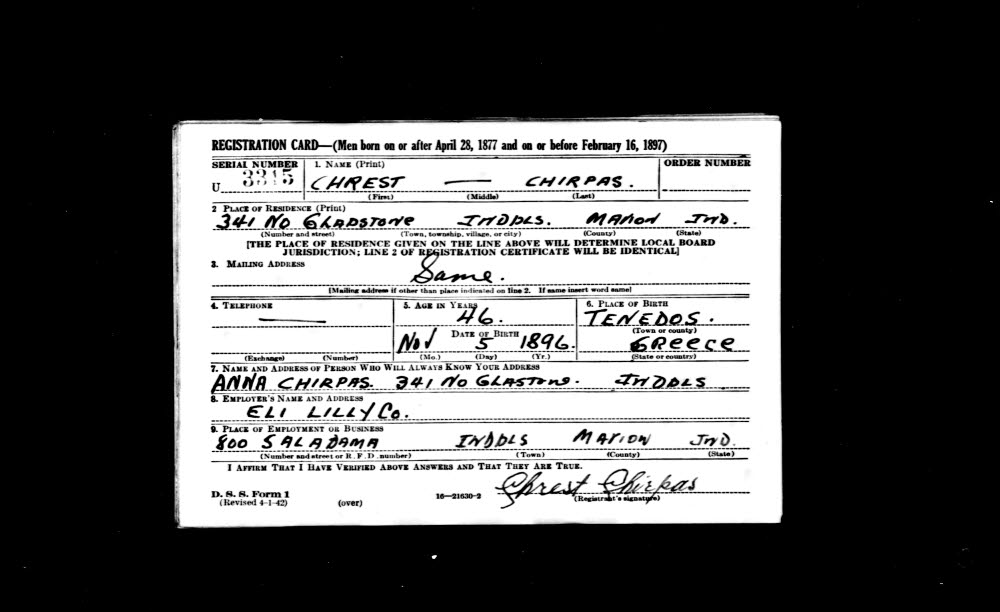 REGISTRATION CARD—(Men born on or after April 28, 1877 and on or before February 16, 1897)
SERIAL NUMBER 1. NAME (Print) ORDER NUMBER
U 3315 CHREST — CHIRPAS.
(First) (Middle) (Last)
2 PLACE OF RESIDENCE (Print)
341 NO GLADSTONE INDPLS. MARION IND.
(Number and street) (Town, township, village, or city) (County) (State)
[THE PLACE OF RESIDENCE GIVEN ON THE LINE ABOVE WILL DETERMINE LOCAL BOARD
JURISDICTION; LINE 2 OF REGISTRATION CERTIFICATE WILL BE IDENTICAL]
3. MAILING ADDRESS
Same.
[Mailing address if other than place indicated on line 2. If same insert word same]
4. TELEPHONE 5. AGE IN YEARS 6. PLACE OF BIRTH
— 46. TENEDOS.
DATE OF BIRTH (Town or county)
Nov 5 1896. GREECE
(Exchange) (Number) (Mo.) (Day) (Yr.) (State or country)
7. NAME AND ADDRESS OF PERSON WHO WILL ALWAYS KNOW YOUR ADDRESS
ANNA CHIRPAS. 341 NO GLASTONE. INDPLS
8. EMPLOYER'S NAME AND ADDRESS
ELI LILLY Co.
9. PLACE OF EMPLOYMENT OR BUSINESS
800 S ALADAMA INDPLS MARION IND.
(Number and street or R. F. D. number) (Town) (County) (State)
I AFFIRM THAT I HAVE VERIFIED ABOVE ANSWERS AND THAT THEY ARE TRUE.
Chrest Chirpas
D. S. S. Form 1 16—21630-2 (Registrant's signature)
(Revised 4-1-42) (over)